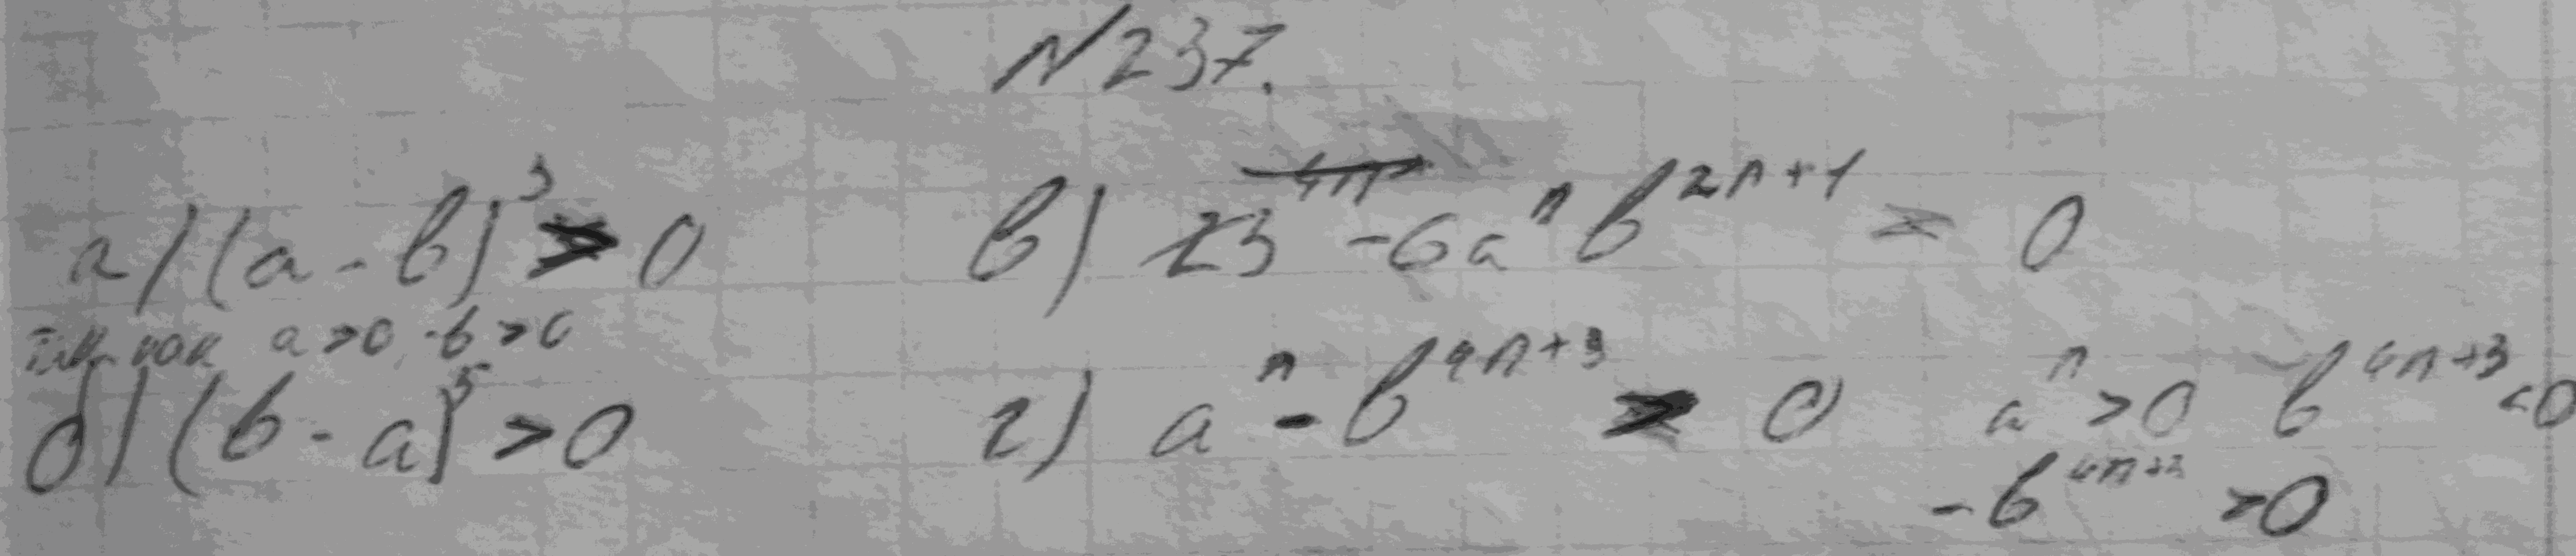 N 237.
а) (a - b)³ > 0
так как a > 0, -b > 0
б) (b - a)⁵ > 0
в) 23 - 6aⁿ b²ⁿ⁺¹ > 0
г) aⁿ - b⁴ⁿ⁺³ > 0 aⁿ > 0 b⁴ⁿ⁺³ < 0
-b⁴ⁿ⁺³ > 0